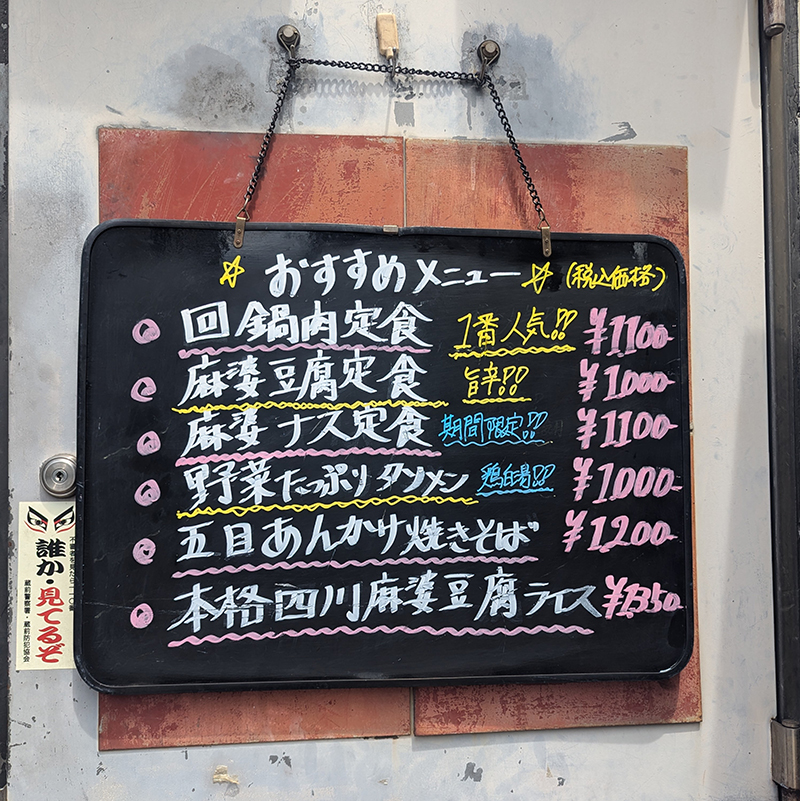 ☆ おすすめメニュー ☆ (税込価格)
回鍋肉定食 1番人気!! ¥1100-
麻婆豆腐定食 旨辛!! ¥1000-
麻婆ナス定食 期間限定!! ¥1100-
野菜たっぷりタンメン 鶏白湯!! ¥1000-
五目あんかけ焼きそば ¥1200-
本格四川麻婆豆腐ライス ¥1350-
誰か・見てるぞ
蔵前警察署・蔵前防犯協会